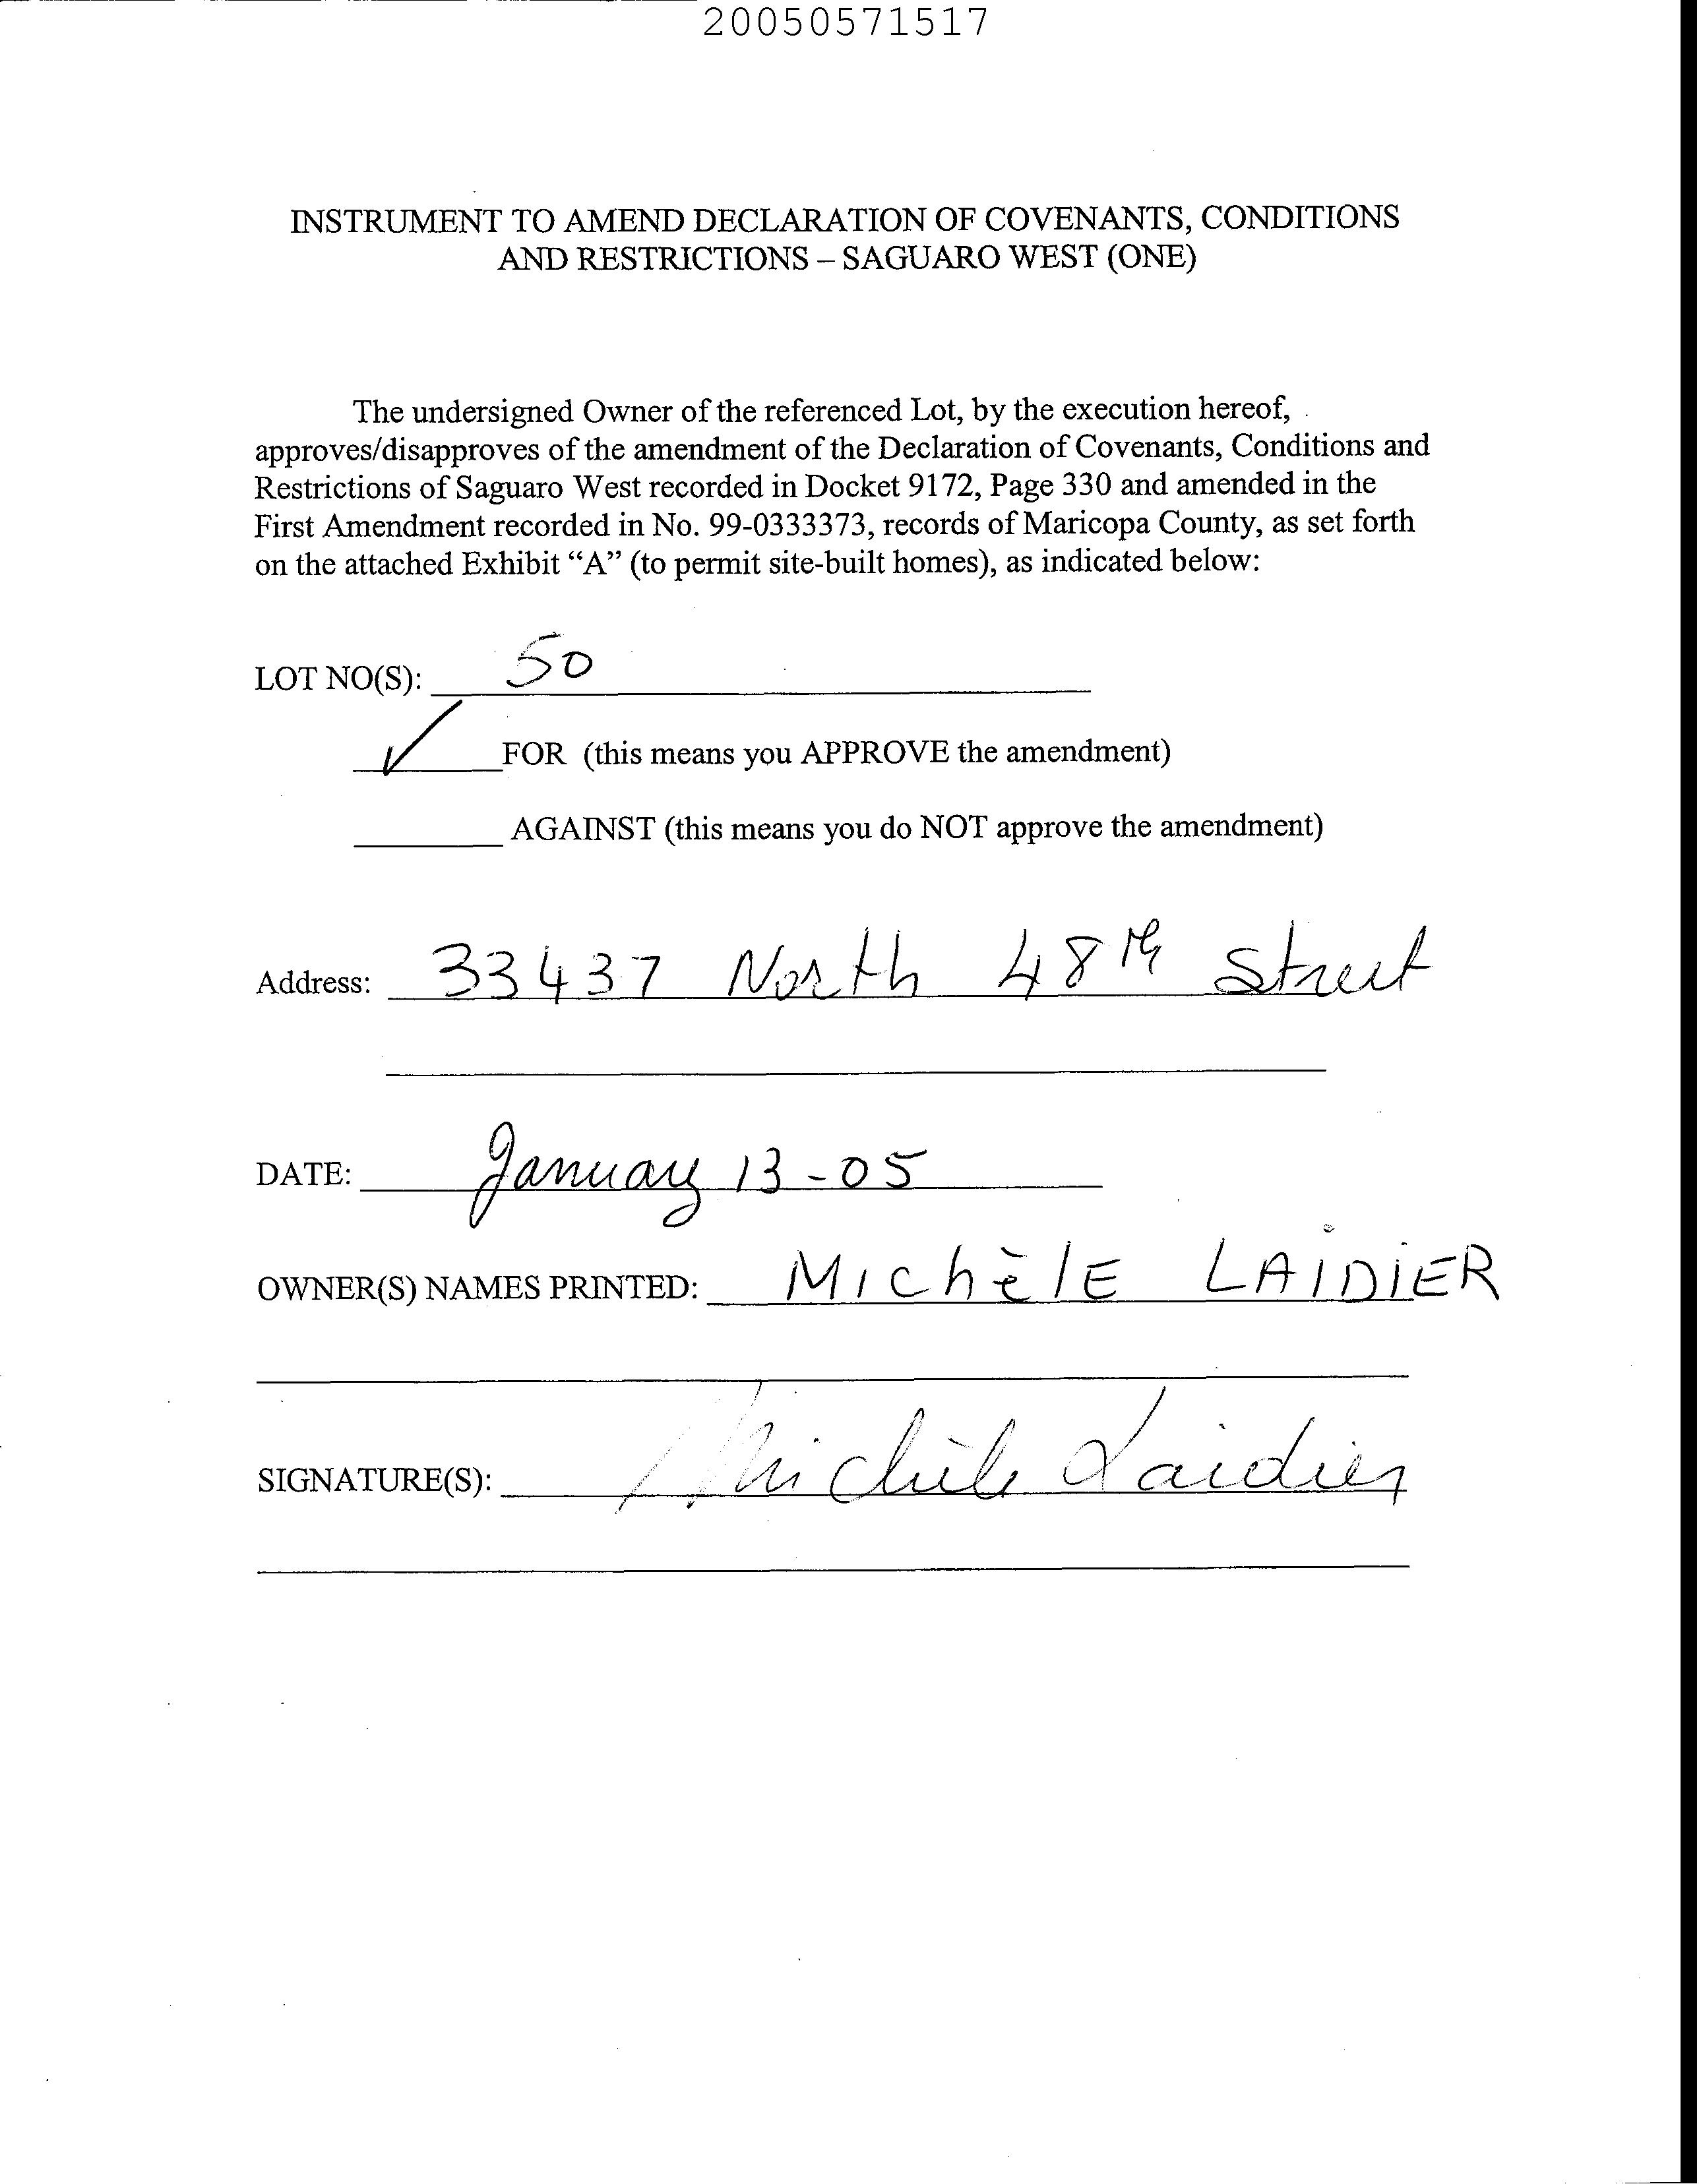 20050571517
INSTRUMENT TO AMEND DECLARATION OF COVENANTS, CONDITIONS
AND RESTRICTIONS – SAGUARO WEST (ONE)
The undersigned Owner of the referenced Lot, by the execution hereof,
approves/disapproves of the amendment of the Declaration of Covenants, Conditions and
Restrictions of Saguaro West recorded in Docket 9172, Page 330 and amended in the
First Amendment recorded in No. 99-0333373, records of Maricopa County, as set forth
on the attached Exhibit “A” (to permit site-built homes), as indicated below:
LOT NO(S): 50
✓ FOR (this means you APPROVE the amendment)
AGAINST (this means you do NOT approve the amendment)
Address: 33437 North 48th Street
DATE: January 13-05
OWNER(S) NAMES PRINTED: MIchèlE LAiDiER
SIGNATURE(S): Michèle Laidier